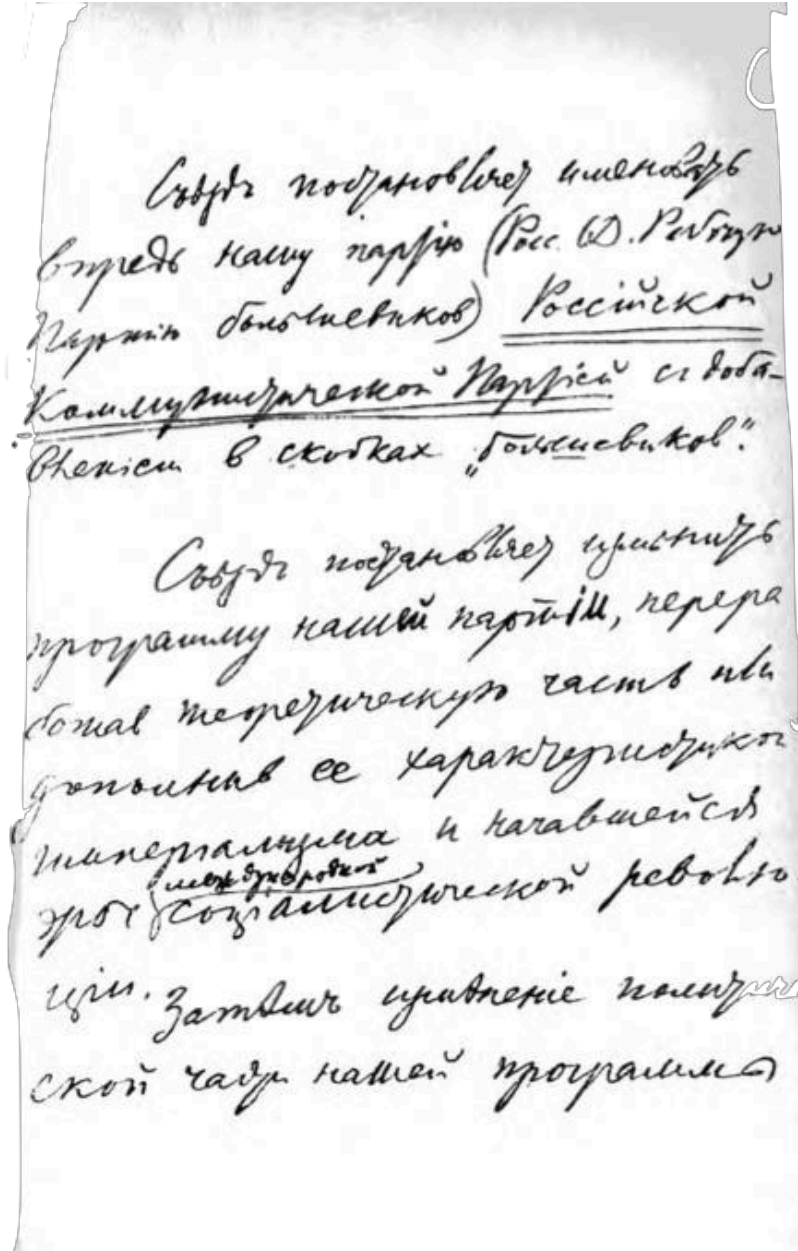 Съѣздъ постановляет именовать
впредь нашу партію (Росс. СД. Рабочую
Партію большевиков) Россійской
Коммунистической Партіей с доба-
вленіем в скобках „большевиков".
Съѣзд постановляет измѣнить
программу нашей партіи, перера
ботав теоретическую часть или
дополнив ее характеристикой
империализма и начавшейся
эры международной
соціалистической револю
ціи. Затѣмъ измѣненіе политиче
ской части нашей программы